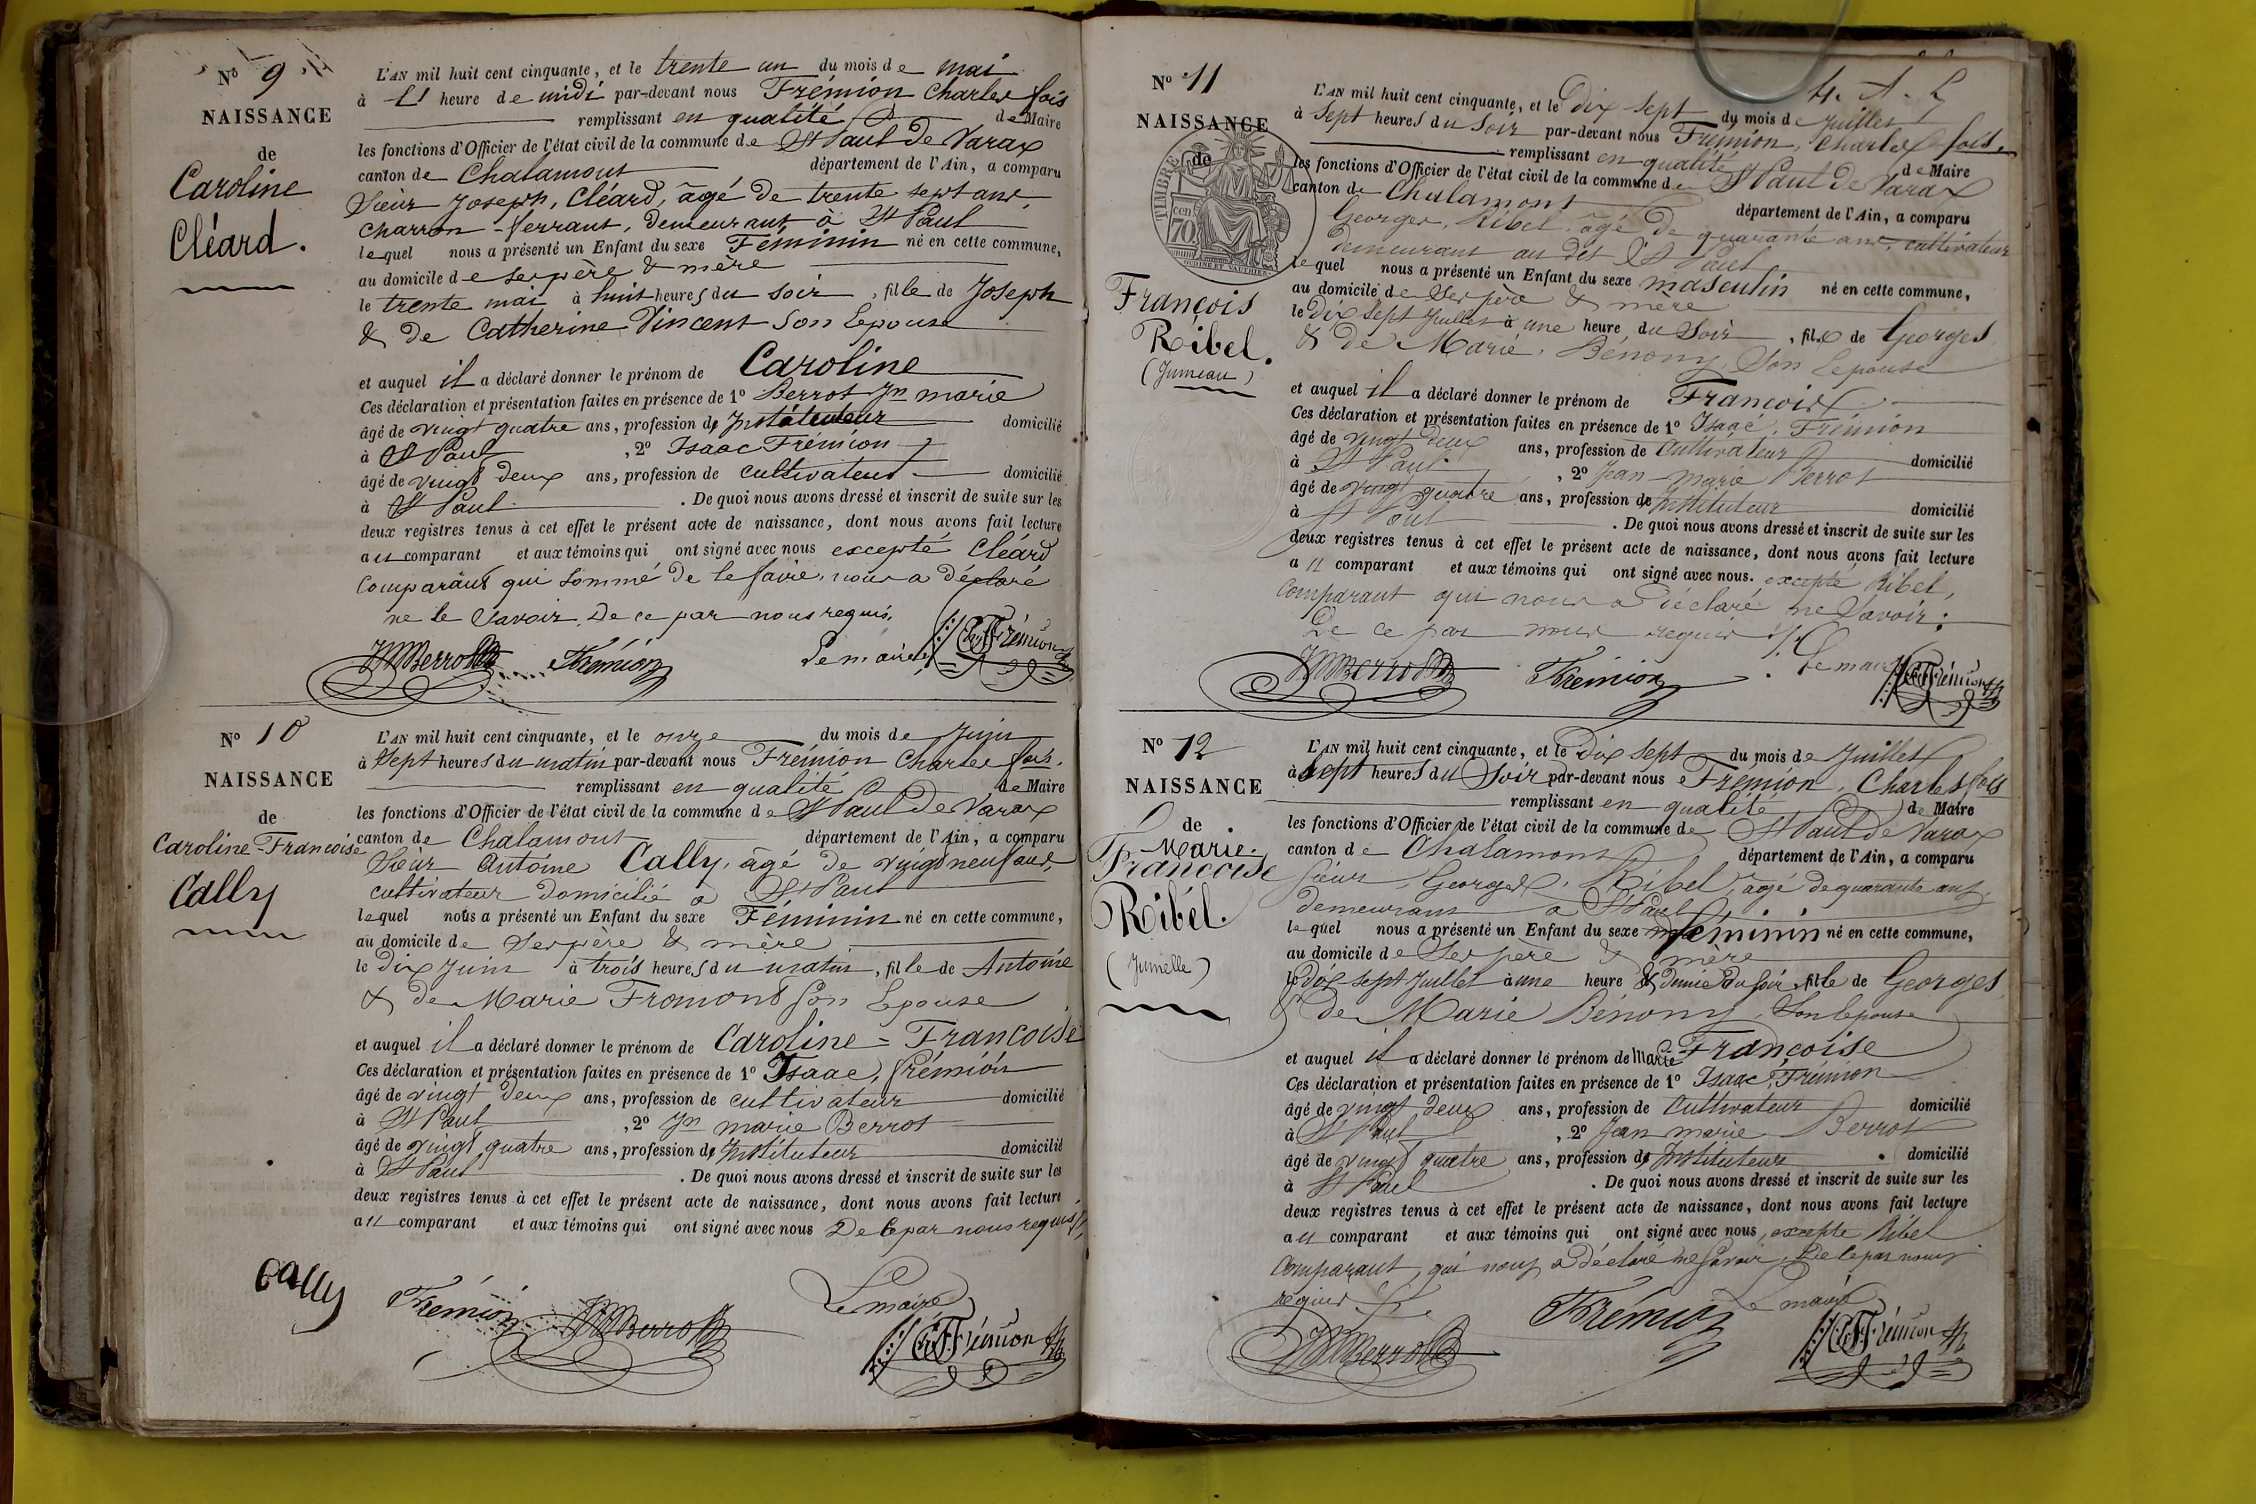 N° 9
NAISSANCE
de
Caroline
Cléard.
L'AN mil huit cent cinquante, et le trente un du mois de mai
à heure de midi par-devant nous Frémion Charles fois
remplissant en qualité de Maire
les fonctions d'Officier de l'état civil de la commune de St Paul de Varax
canton de Chalamont département de l'Ain, a comparu
Sieur Joseph, Cléard, âgé de trente sept ans,
charron-ferrant, demeurant à St Paul
lequel nous a présenté un Enfant du sexe Féminin né en cette commune,
au domicile de ses père & mère
le trente mai à huit heures du soir, fille de Joseph
& de Catherine Vincent son Epouse
et auquel il a déclaré donner le prénom de Caroline
Ces déclaration et présentation faites en présence de 1° Berrot Jn marie
âgé de vingt quatre ans, profession d' Instituteur domicilié
à St Paul, 2° Isaac Frémion
âgé de vingt deux ans, profession de cultivateur domicilié
à St Paul. De quoi nous avons dressé et inscrit de suite sur les
deux registres tenus à cet effet le présent acte de naissance, dont nous avons fait lecture
au comparant et aux témoins qui ont signé avec nous excepté Cléard
Comparant qui sommé de le faire, nous a déclaré
ne le savoir, De ce par nous requis.
JM Berrot Frémion Le maire Ch F Frémion
N° 10
NAISSANCE
de
Caroline Francoise
Cally
L'AN mil huit cent cinquante, et le onze du mois de Juin
à Sept heures du matin par-devant nous Frémion Charles fois.
remplissant en qualité de Maire
les fonctions d'Officier de l'état civil de la commune de St Paul de Varax
canton de Chalamont département de l'Ain, a comparu
Sieur Antoine Cally, âgé de vingt neuf ans,
cultivateur domicilié a St Paul
lequel nous a présenté un Enfant du sexe Féminin né en cette commune,
au domicile de Ses père & mère
le dix Juin à trois heures du matin, fille de Antoine
& de Marie Fromont Son Epouse
et auquel il a déclaré donner le prénom de Caroline = Francoise
Ces déclaration et présentation faites en présence de 1° Isaac, Frémion
âgé de vingt deux ans, profession de cultivateur domicilié
à St Paul, 2° Jn marie Berrot
âgé de vingt quatre ans, profession d' Instituteur domicilié
à St Paul. De quoi nous avons dressé et inscrit de suite sur les
deux registres tenus à cet effet le présent acte de naissance, dont nous avons fait lecture
au comparant et aux témoins qui ont signé avec nous De ce par nous requis
Cally Frémion JM Berrot Le maire Ch F Frémion
N° 11
NAISSANCE
de
TIMBRE
70 cen
François
Ribel.
(Jumeau)
L'AN mil huit cent cinquante, et le Dix Sept du mois de Juillet
à Sept heures du Soir par-devant nous Frémion, Charles fois.
remplissant en qualité de Maire
les fonctions d'Officier de l'état civil de la commune de St Paul de Varax
canton de Chalamont département de l'Ain, a comparu
Georges, Ribel âgé de quarante ans, cultivateur
demeurant au dit St Paul
lequel nous a présenté un Enfant du sexe masculin né en cette commune,
au domicile de Ses père & mère
le Dix Sept Juillet à une heure du Soir, fils de Georges
& de Marie, Bénony, Son Epouse
et auquel il a déclaré donner le prénom de Francois
Ces déclaration et présentation faites en présence de 1° Isaac, Frémion
âgé de vingt deux ans, profession de Cultivateur domicilié
à St Paul, 2° Jean-marie Berrot
âgé de vingt quatre ans, profession d' Instituteur domicilié
à St Paul. De quoi nous avons dressé et inscrit de suite sur les
deux registres tenus à cet effet le présent acte de naissance, dont nous avons fait lecture
au comparant et aux témoins qui ont signé avec nous. excepté Ribel,
Comparant qui nous a déclaré ne Savoir:
De ce par nous requis
JM Berrot Frémion Le maire Ch F Frémion
N° 12
NAISSANCE
de
Marie-
Francoise
Ribél.
(Jumelle)
L'AN mil huit cent cinquante, et le Dix Sept du mois de Juillet
à Sept heures du Soir par-devant nous Frémion, Charles fois
remplissant en qualité de Maire
les fonctions d'Officier de l'état civil de la commune de St Paul de Varax
canton de Chalamont département de l'Ain, a comparu
Sieur, Georges, Ribel, âgé de quarante ans,
demeurant a St Paul
lequel nous a présenté un Enfant du sexe féminin né en cette commune,
au domicile de Ses père & mère
le Dix Sept Juillet à une heure & demie du soir, fille de Georges
& de Marie Bénony, Son Epouse
et auquel il a déclaré donner le prénom de Marie Françoise
Ces déclaration et présentation faites en présence de 1° Isaac, Frémion
âgé de vingt deux ans, profession de Cultivateur domicilié
à St Paul, 2° Jean marie Berrot
âgé de vingt quatre ans, profession d' Instituteur domicilié
à St Paul. De quoi nous avons dressé et inscrit de suite sur les
deux registres tenus à cet effet le présent acte de naissance, dont nous avons fait lecture
au comparant et aux témoins qui ont signé avec nous, excepté Ribel
Comparant, qui nous a déclaré ne Savoir, De ce par nous
requis
JM Berrot Frémion Le maire Ch F Frémion